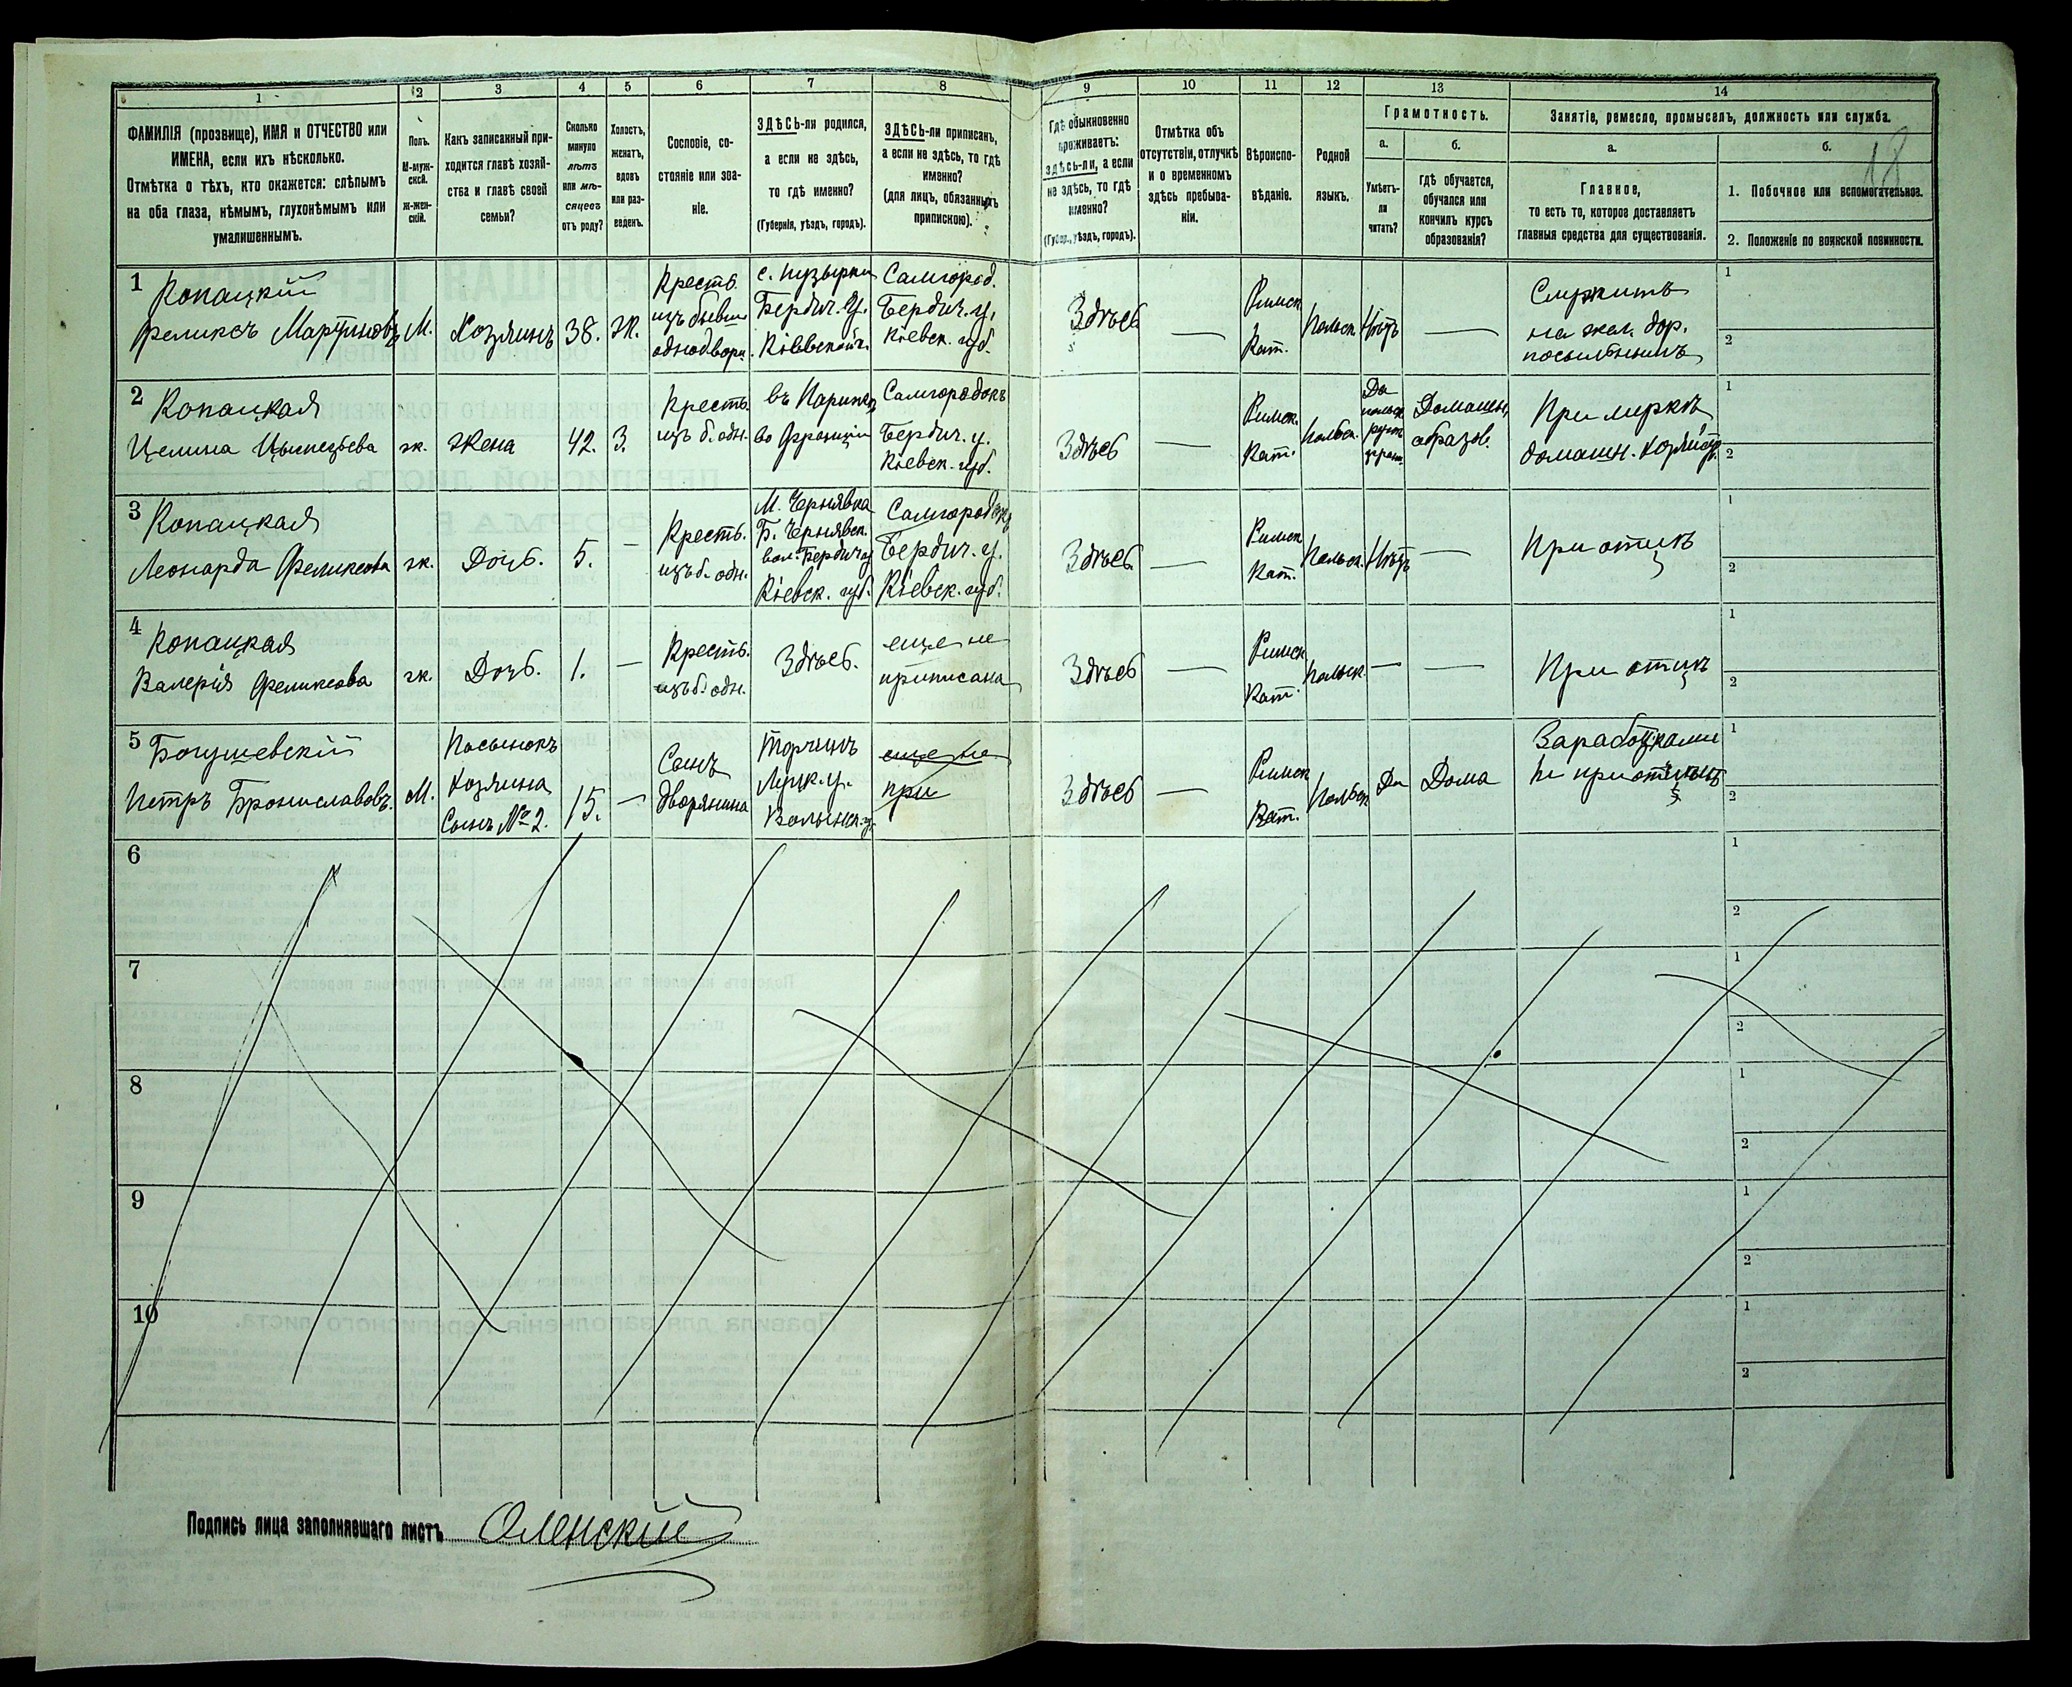 1 2 3 4 5 6 7 8 9 10 11 12 13 14
ФАМИЛІЯ (прозвище), ИМЯ и ОТЧЕСТВО или
ИМЕНА, если ихъ нѣсколько.
Отмѣтка о тѣхъ, кто окажется: слѣпымъ
на оба глаза, нѣмымъ, глухонѣмымъ или
умалишеннымъ.
Полъ.
М-муж-
ской.
Ж-жен-
скій.
Какъ записанный при-
ходится главѣ хозяй-
ства и главѣ своей
семьи?
Сколько
минуло
лѣтъ
или мѣ-
сяцевъ
отъ роду?
Холостъ,
женатъ,
вдовъ
или раз-
веденъ.
Сословіе, со-
стояніе или зва-
ніе.
ЗДѢСЬ-ли родился,
а если не здѣсь,
то гдѣ именно?
(Губернія, уѣздъ, городъ).
ЗДѢСЬ-ли приписанъ,
а если не здѣсь, то гдѣ
именно?
(для лицъ, обязанныхъ
припискою).
Гдѣ обыкновенно
проживаетъ:
здѣсь-ли, а если
не здѣсь, то гдѣ
именно?
(Губер., уѣздъ, городъ).
Отмѣтка объ
отсутствіи, отлучкѣ
и о временномъ
здѣсь пребыва-
ніи.
Вѣроиспо-
вѣданіе.
Родной
языкъ.
Грамотность.
а.
Умѣетъ-
ли
читать?
б.
Гдѣ обучается,
обучался или
кончилъ курсъ
образованія?
Занятіе, ремесло, промыселъ, должность или служба.
а.
Главное,
то есть то, которое доставляетъ
главныя средства для существованія.
б.
18
1. Побочное или вспомогательное.
2. Положеніе по воинской повинности.
1
Копацкій
Феликсъ Мартиновъ
М.
Хозяинъ
38.
Ж.
Крестъ.
изъ бывш
однодвор.
с. Пузырки
Бердич. у.
Кіевской г.
Самгород.
Бердич. у.
Кіевск. губ.
Здѣсь
Римск
Кат.
Польск
Нѣтъ
Служитъ
на жел. дор.
посыльнымъ
1
2
2
Копацкая
Целина
ж.
Жена
42.
З.
Крестъ.
изъ б. одн.
въ Парижѣ
во Франціи
Самгородокъ
Бердич. у.
Кіевск. губ.
Здѣсь
Римск.
Кат.
Польск.
Да
Домашн.
образов.
При мужѣ
домашн. хозяйст.
1
2
3
Копацкая
Леонарда Феликсова
ж.
Дочь.
5.
Крестъ.
изъ б. одн.
М. Чернявка
Б. Чернявск.
вол. Бердич у
Кіевск. губ.
Самгородокъ
Бердич. у.
Кіевск. губ.
Здѣсь
Римск
Кат.
Польск.
Нѣтъ
При отцѣ
1
2
4
Копацкая
Валерія Феликсова
ж.
Дочь.
1.
Крестъ.
изъ б. одн.
Здѣсь.
еще не
приписана
Здѣсь
Римск
Кат.
Польск.
При отцѣ
1
2
5
Богушевскій
Петръ Брониславовъ.
М.
Пасынокъ
хозяина
Сынъ № 2.
15.
Сынъ
дворянина
Торчинъ
Луцк. у.
Волынск. г.
еще не
при
Здѣсь
Римск
Кат.
Польск
Да
Дома
1
2
6
1
2
7
1
2
8
1
2
9
1
2
10
1
2
Подпись лица заполнявшаго листъ Оленскій